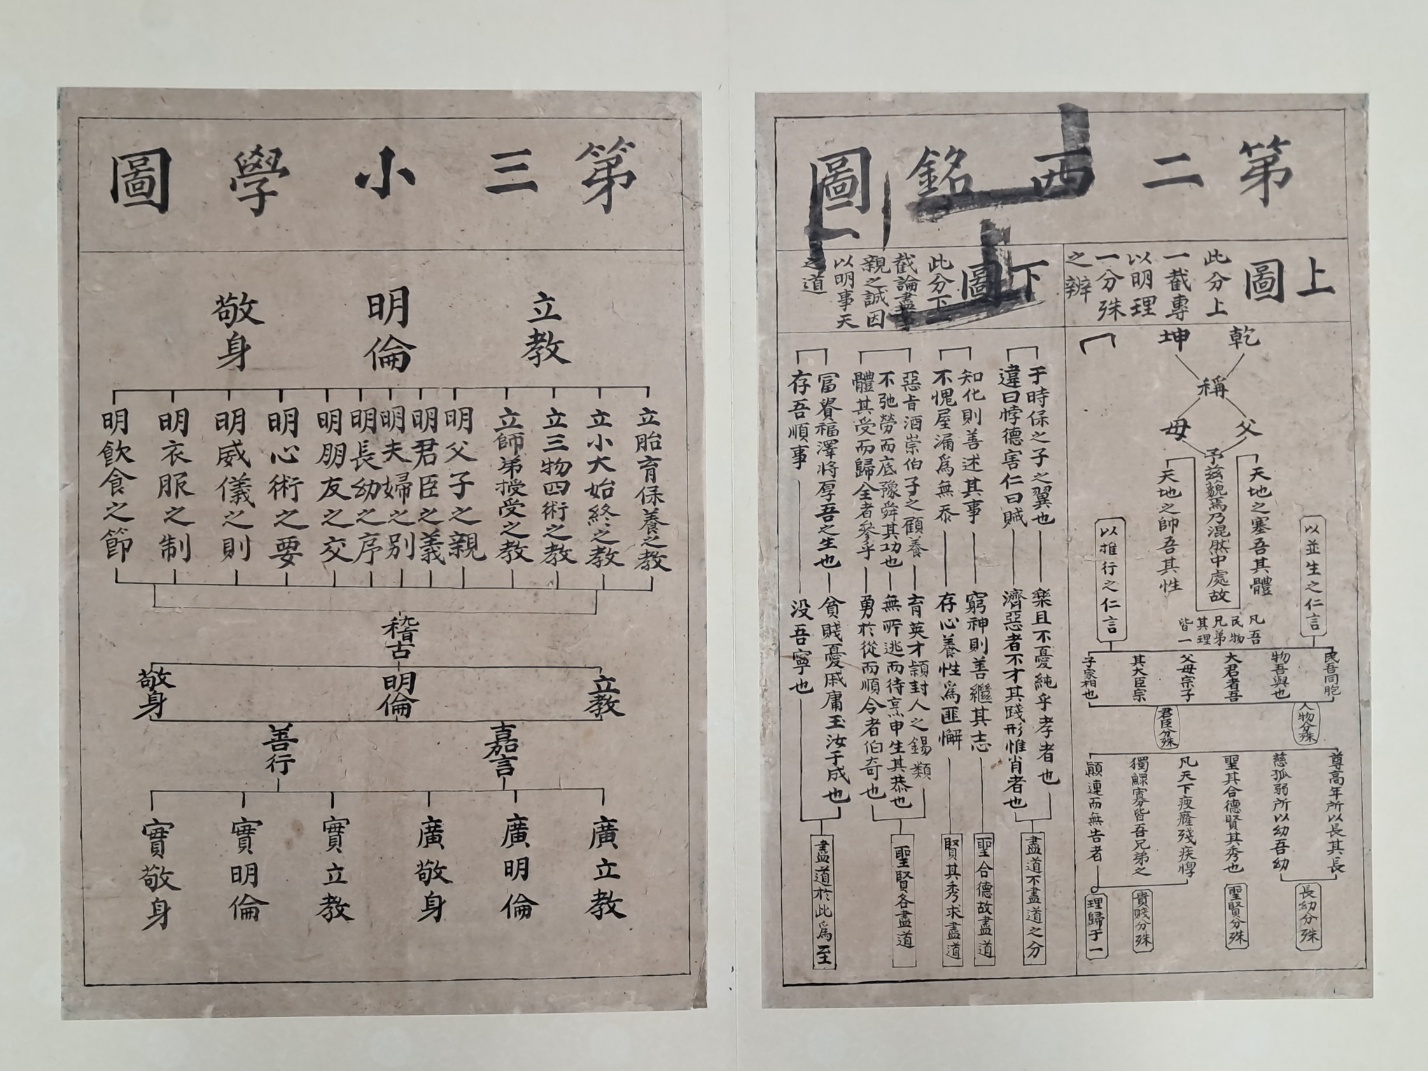 第二西銘圖
上圖
此分上
一截專
以明理
一分殊
之辨
下圖
此分下
截論盡事
親之誠因
以明事天
之道
乾
坤
稱
父
母
予茲藐焉乃混然中處故
天地之塞吾其體
天地之帥吾其性
以並生之仁言
以推行之仁言
凡吾
民物
兄弟
其理
皆一
民吾同胞
物吾與也
大君者吾
父母宗子
其大臣宗
子家相也
人物分殊
君臣分殊
尊高年所以長其長
慈孤弱所以幼吾幼
聖其合德賢其秀也
凡天下疲癃殘疾惸
獨鰥寡皆吾兄弟之
顚連而無告者
長幼分殊
聖賢分殊
貴賤分殊
理歸于一
于時保之子之翼也
樂且不憂純乎孝者也
違曰悖德害仁曰賊
濟惡者不才其踐形惟肖者也
盡道不盡道之分
知化則善述其事
窮神則善繼其志
聖合德故盡道
不愧屋漏爲無忝
存心養性爲匪懈
賢其秀求盡道
惡旨酒崇伯子之顧養
育英才穎封人之錫類
不弛勞而底豫舜其功也
無所逃而待烹申生其恭也
體其受而歸全者參乎
勇於從而順令者伯奇也
聖賢各盡道
富貴福澤將厚吾之生也
貧賤憂戚庸玉汝于成也
存吾順事
没吾寧也
盡道於此爲至
第三小學圖
立教
明倫
敬身
立胎育保養之教
立小大始終之教
立三物四術之教
立師弟授受之教
明父子之親
明君臣之義
明夫婦之別
明長幼之序
明朋友之交
明心術之要
明威儀之則
明衣服之制
明飲食之節
稽古
立教
明倫
敬身
嘉言
善行
廣立教
廣明倫
廣敬身
實立教
實明倫
實敬身